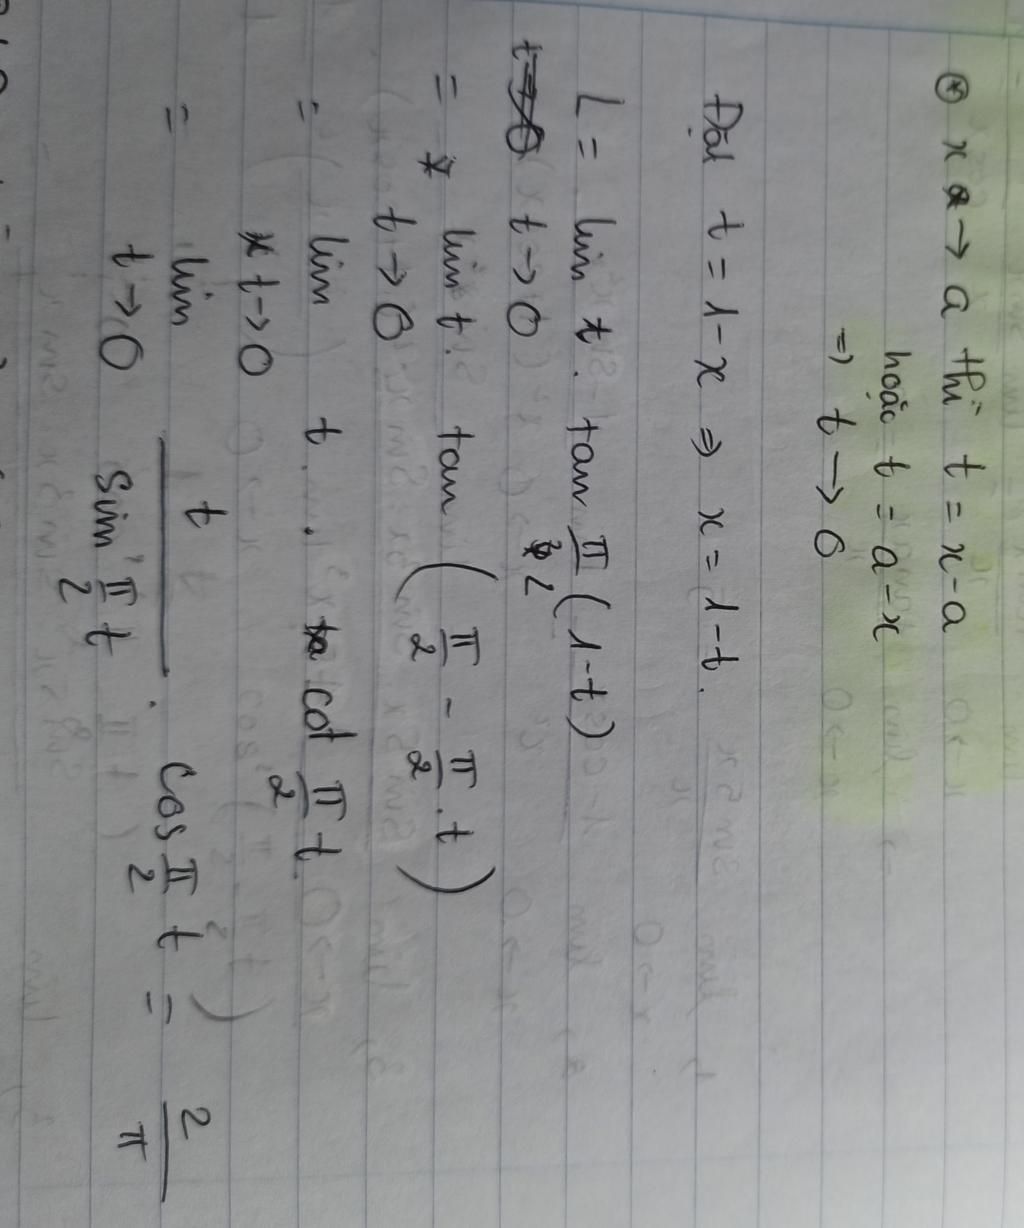 ⊛ x → a thì t = x - a
hoặc t = a - x
⇒ t → 0
Đặt t = 1 - x ⇒ x = 1 - t.
L = lim t . tan π/2 (1 - t)
t → 0
= lim t . tan ( π/2 - π/2 . t )
t → 0
= lim t . cot π/2 t
t → 0
= lim t / sin π/2 t . cos π/2 t = 2/π
t → 0